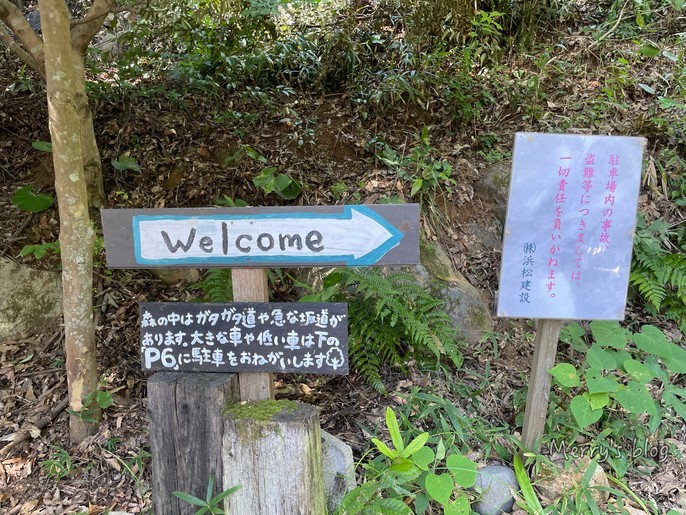 Welcome
森の中はガタガタ道や急な坂道が
あります。大きな車や低い車は下の
P6.に駐車をおねがいします
駐車場内の事故、
盗難等につきましては、
一切責任を負いかねます。
㈱浜松建設
Merry's blog